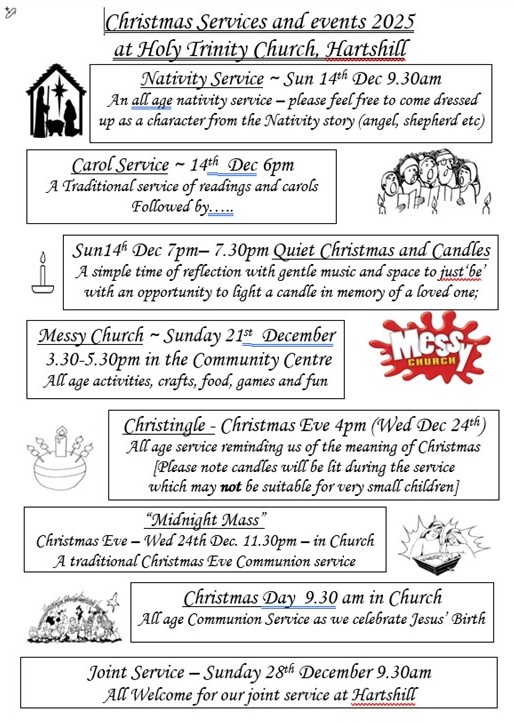 Christmas Services and events 2025
at Holy Trinity Church, Hartshill
Nativity Service ~ Sun 14th Dec 9.30am
An all age nativity service – please feel free to come dressed
up as a character from the Nativity story (angel, shepherd etc)
Carol Service ~ 14th Dec 6pm
A Traditional service of readings and carols
Followed by…..
Sun14th Dec 7pm– 7.30pm Quiet Christmas and Candles
A simple time of reflection with gentle music and space to just‘be’
with an opportunity to light a candle in memory of a loved one;
Messy Church ~ Sunday 21st December
3.30-5.30pm in the Community Centre
All age activities, crafts, food, games and fun
Messy
CHURCH
Christingle - Christmas Eve 4pm (Wed Dec 24th)
All age service reminding us of the meaning of Christmas
[Please note candles will be lit during the service
which may not be suitable for very small children]
“Midnight Mass”
Christmas Eve – Wed 24th Dec. 11.30pm – in Church
A traditional Christmas Eve Communion service
Christmas Day 9.30 am in Church
All age Communion Service as we celebrate Jesus’ Birth
Joint Service – Sunday 28th December 9.30am
All Welcome for our joint service at Hartshill